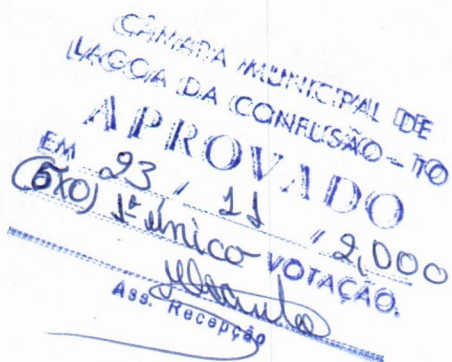 CÂMARA MUNICIPAL DE
LAGOA DA CONFUSÃO - TO
APROVADO
EM 23 / 11 / 2,000
(6X0) 1ª único VOTAÇÃO.
Ass. Recepção